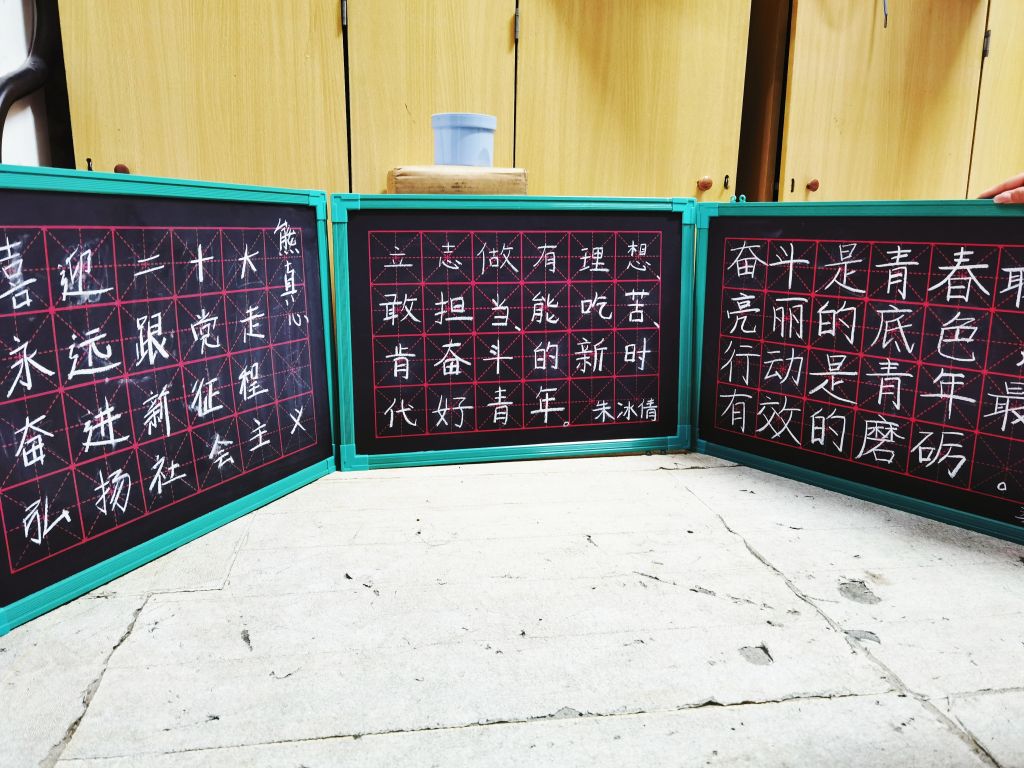 喜迎二十大
永远跟党走
奋进新征程
弘扬社会主义
熊
立志做有理想、
敢担当、能吃苦、
肯奋斗的新时
代好青年。朱冰倩
奋斗是青春
亮丽的底色
行动是青年最
有效的磨砺。